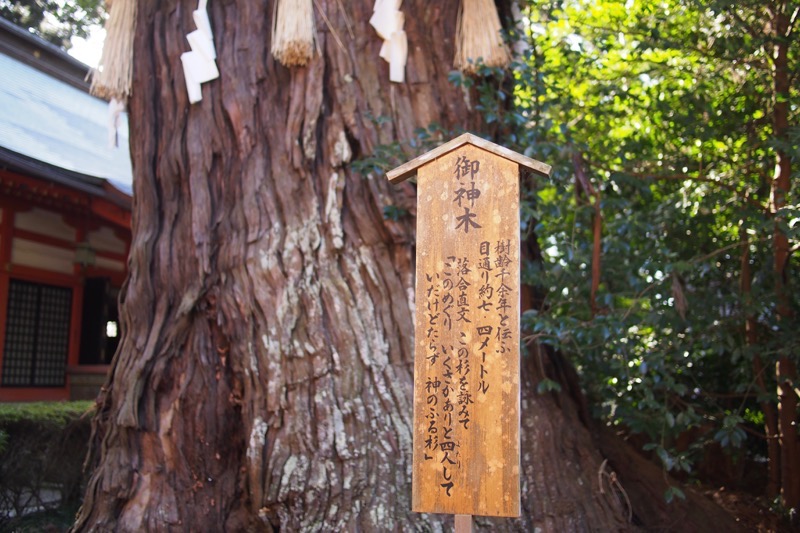 御神木
樹齢千余年と伝ふ
目通り約七．四メートル
落合直文 この杉を詠みて
「このめぐり いくさかありと四人して
よたり
いだけどたらず 神のふる杉」